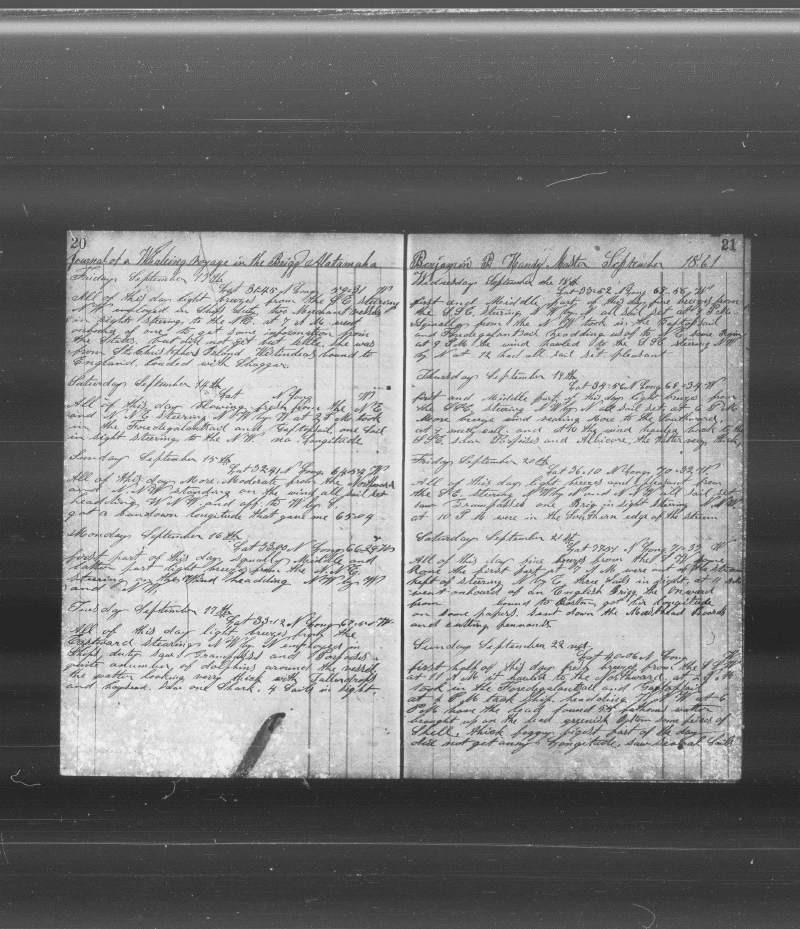 20
Journal of a Whaling voyage in the Brigg Alatamaha
Friday September 13th
Lat 31-45 N Long 59-31 W
All of this day light breezes from the S E steering
N W employed in Ships duty, two Merchant vessels
in sight steering to the N E. at 7 A M went
onboard of one to get some information from
the States. but did not get but little, she was
from St Christophers Island Westindies bound to
England, loaded with Shuggar
Saturday September 14th
Lat N Long W
All of this day blowing fresh from the N E
and N N E steering N W by W at 2 P M took
in the Foretopgalantsail and Gafftopsail one Sail
in sight steering to the N W no Longitude
Sunday September 15th
Lat 32-41 N Long 64-52 W
All of this day More Moderate from the Northward
and N N W standing on the wind all sail set
heading W N W and off to W by S
got a bandown longitude that gave me 65-09
Monday September 16th
Lat 33-00 N Long 66-29 W
first part of this day squally Middle and
latter part light breezes from the N N E
steering on the Wind heading N W by W
and N W
Tuesday September 17th
Lat 33-12 N Long 67-54 W
All of this day light breezes from the
Eastward stearing N W by N employed in
Ships duty saw Grampuses and Porpoises
quite a number of dolphins around the vessel
the watter looking very thick with
and Saw one Shark. 4 Sails in sight
21
Benjamin D Handy Master September 1861
Wednesday September the 18th
Lat 33-52 N Long 68-56 W
first and Middle part of this day fine breezes from
the S S E, steering N W by N all sail set at 4 P M
squally from the N W took in the Gaftopsail
and Foretopgalantsail heading off to N E
at 9 P M the wind hauled to the S S E steering N W
by N at 12 had all sail set pleasant
Thursday September 19th
Lat 34-56 N Long 69-34 W
first and Middle part of this day light breezes from
the S S E, steering N W by N all sail set, at 6 P M
More breeze wind vearing More to the Westward,
at and at 10 the wind hauled back to the
S S E, saw Porpoises and Albicore, the watter very thick
Friday September 20th
Lat 36-10 N Long 70-22 W
All of this day light breezes and pleasant from
the S E, steering N W by N and N N W all sail set
saw Grampusses one Brig in sight steering
at 10 P M were in the Southern edge of the stream
Saturday September 21st
Lat 37-57 N Long 71-33 W
All of this day fine breezes from the
the first part, at 7 P M was out of the stream
kept of steering N by E, three sails in sight, at 11 A M
went onboard of an English Brigg, the Onward
from bound to Boston, got his longitude
and some papers. sent down the Masthead Boards
and cutting pennants.
Sunday September 22nd
Lat 40-06 N Long W
first half of this day fresh breezes from the S S W
at 11 A M it hauled to the Northward, at 2 P M
took in the Foretopgalantsail and Gaftopsail
at 4 P M tack ship heading W N W at 6
P M hove the Lead found 35 fathoms watter
brought up on the lead greenish bottom some pieces of
Shell, thick foggy first part of the day
did not get anny Longitude, saw several Sails